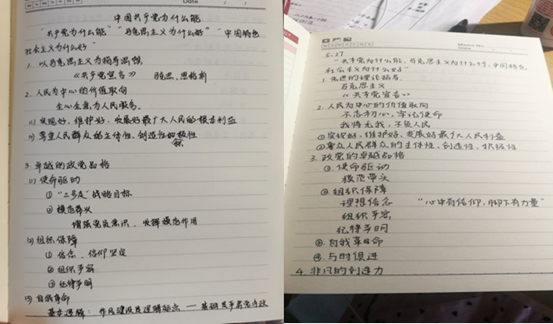 中国共产党为什么能
“共产党为什么能”“马克思主义为什么好”“中国特色
社会主义为什么好”
1. 以马克思主义为指导思想
《共产党宣言》
2. 人民为中心的价值取向
全心全意为人民服务。
(1) 实现好、维护好、发展好最广大人民的根本利益
(2) 尊重人民群众的主体性、创造性、积极性
3. 卓越的政党品格
(1) 使命驱动
① “三步走”战略目标
② 模范带头
增强党员意识，发挥模范作用
(2) 组织保障
① 信念、信仰坚定
② 组织严密
③ 纪律严明
(3) 自我革命
5.27
“共产党为什么能，马克思主义为什么行，中国特色
社会主义为什么好”
1. 先进的理论指导
马克思主义
《共产党宣言》
2. 人民为中心的价值取向
不忘初心，牢记使命
我将无我，不负人民
① 实现好、维护好、发展好最广大人民利益
② 尊众人民群众的主体性、创造性、积极性
3. 政党的卓越品格
①. 使命驱动
模范带头
②. 组织保障
理想信念 “心中有信仰，脚下有力量”
组织严密
纪律严明
③. 自我革命
④. 与时俱进
4. 非凡的创造力